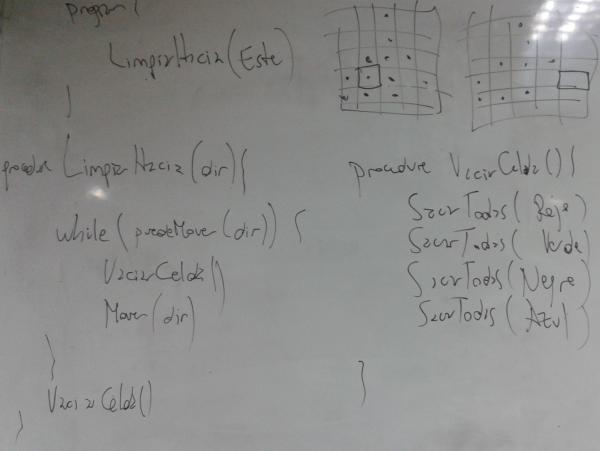 program {
LimpiarHacia(Este)
}
procedure LimpiarHacia(dir){
while(puedeMover(dir)) {
VaciarCelda()
Mover(dir)
}
VaciarCelda()
}
procedure VaciarCelda(){
SacarTodas(Rojo)
SacarTodas(Verde)
SacarTodas(Negro)
SacarTodas(Azul)
}